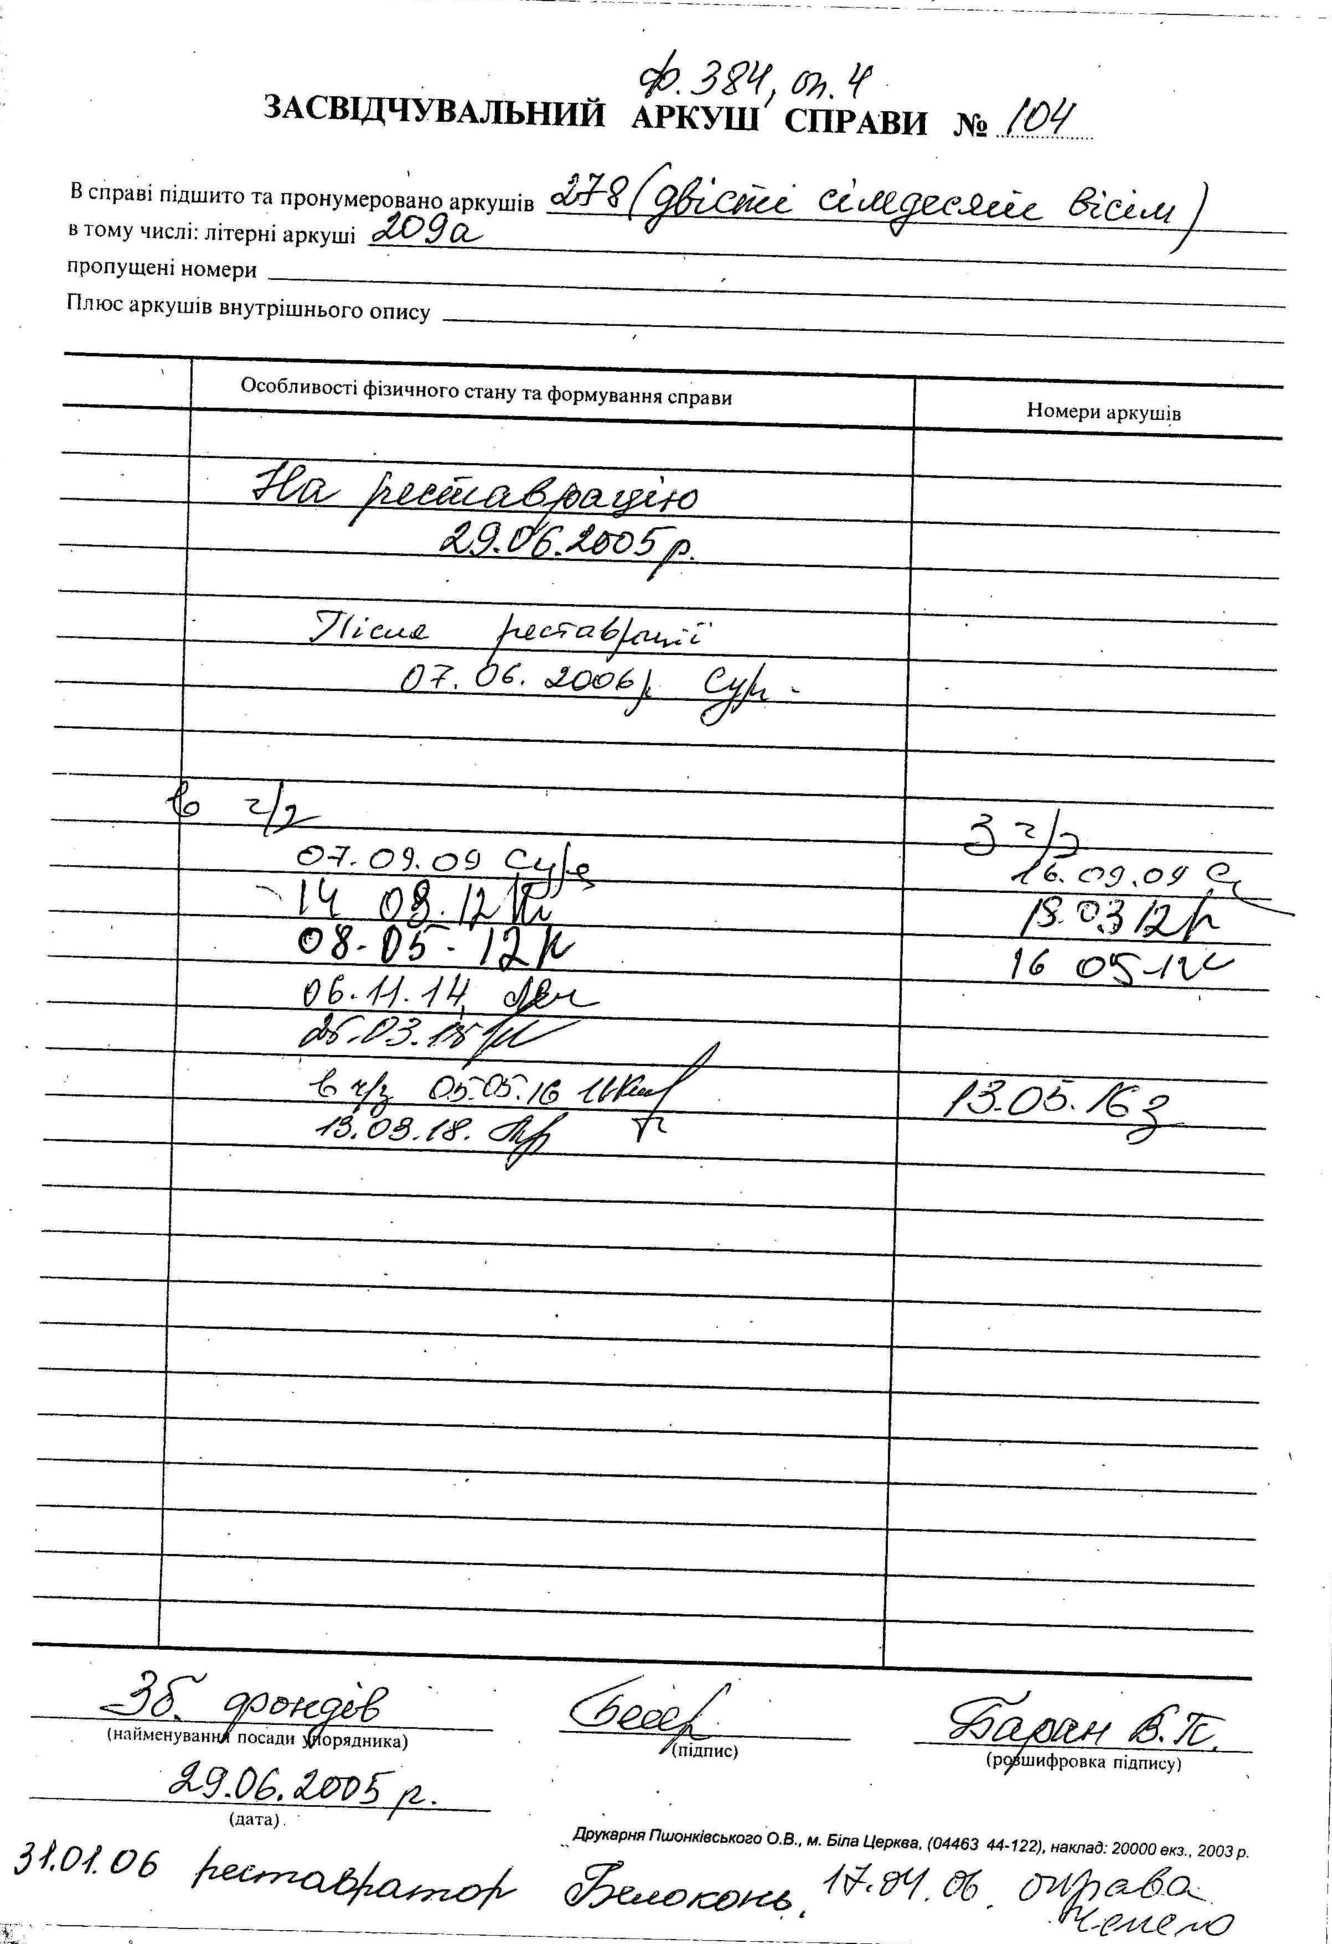 ф. 384, оп. 4
ЗАСВІДЧУВАЛЬНИЙ АРКУШ СПРАВИ № 104
В справі підшито та пронумеровано аркушів 278 (двісті сімдесят вісім)
в тому числі: літерні аркуші 209а
пропущені номери
Плюс аркушів внутрішнього опису
Особливості фізичного стану та формування справи
Номери аркушів
На реставрацію
29.06.2005 р.
Після реставрації
07.06.2006 р
в ч/з
З ч/з
07.09.09
16.09.09
14 03.12
19.03 12
08-05-12
16 05-12
06.11.14
25.03.15
в ч/з 05.05.16
13.05.16
13.03.18.
Зб. фондів
Баран В.П.
(найменування посади упорядника)
(підпис)
(розшифровка підпису)
29.06.2005 р.
(дата)
Друкарня Пшонківського О.В., м. Біла Церква, (04463 44-122), наклад: 20000 екз., 2003 р.
31.01.06 реставратор Белоконь. 17.04.06. оправа